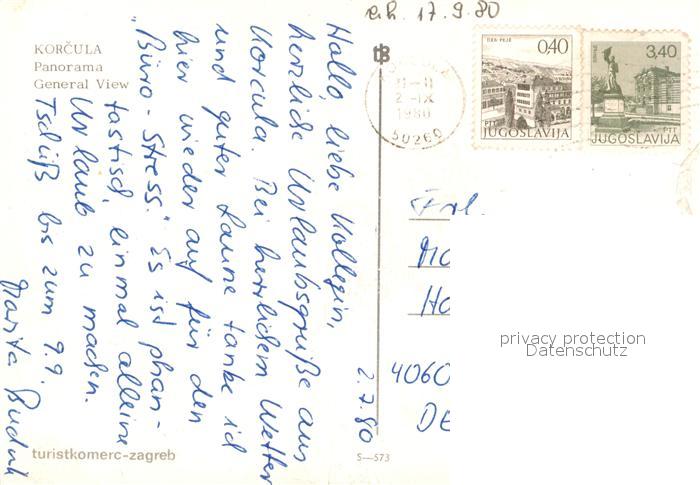 KORČULA
Panorama
General View
Hallo, liebe Kollegin,
herzliche Urlaubsgrüße aus
Korcula. Bei herrlichem Wetter
und guter Laune tanke ich
hier wieder auf für den
"Büro-Stress". Es ist phan-
tastisch, einmal alleine
Urlaub zu machen.
Tschüß bis zum 9.9.
Marita
2.9.80
turistkomerc-zagreb
S—573
17.9.80
2-IX
1980
50260
0,40
PTT
JUGOSLAVIJA
3,40
PTT
JUGOSLAVIJA
Frl.
Mo
Ho
4060
DE
privacy protection
Datenschutz